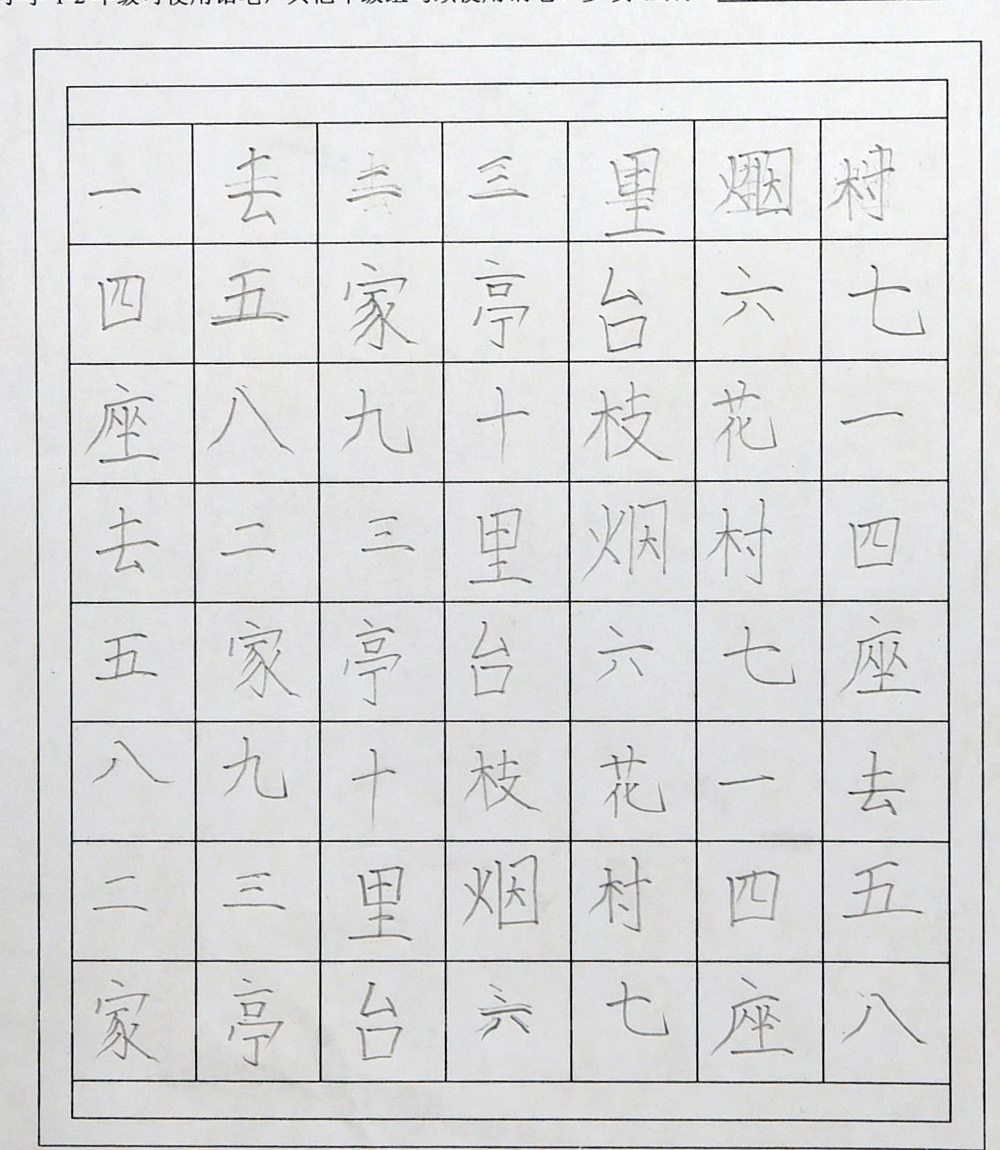 一去二三里烟村
四五家亭台六七
座八九十枝花一
去二三里烟村四
五家亭台六七座
八九十枝花一去
二三里烟村四五
家亭台六七座八